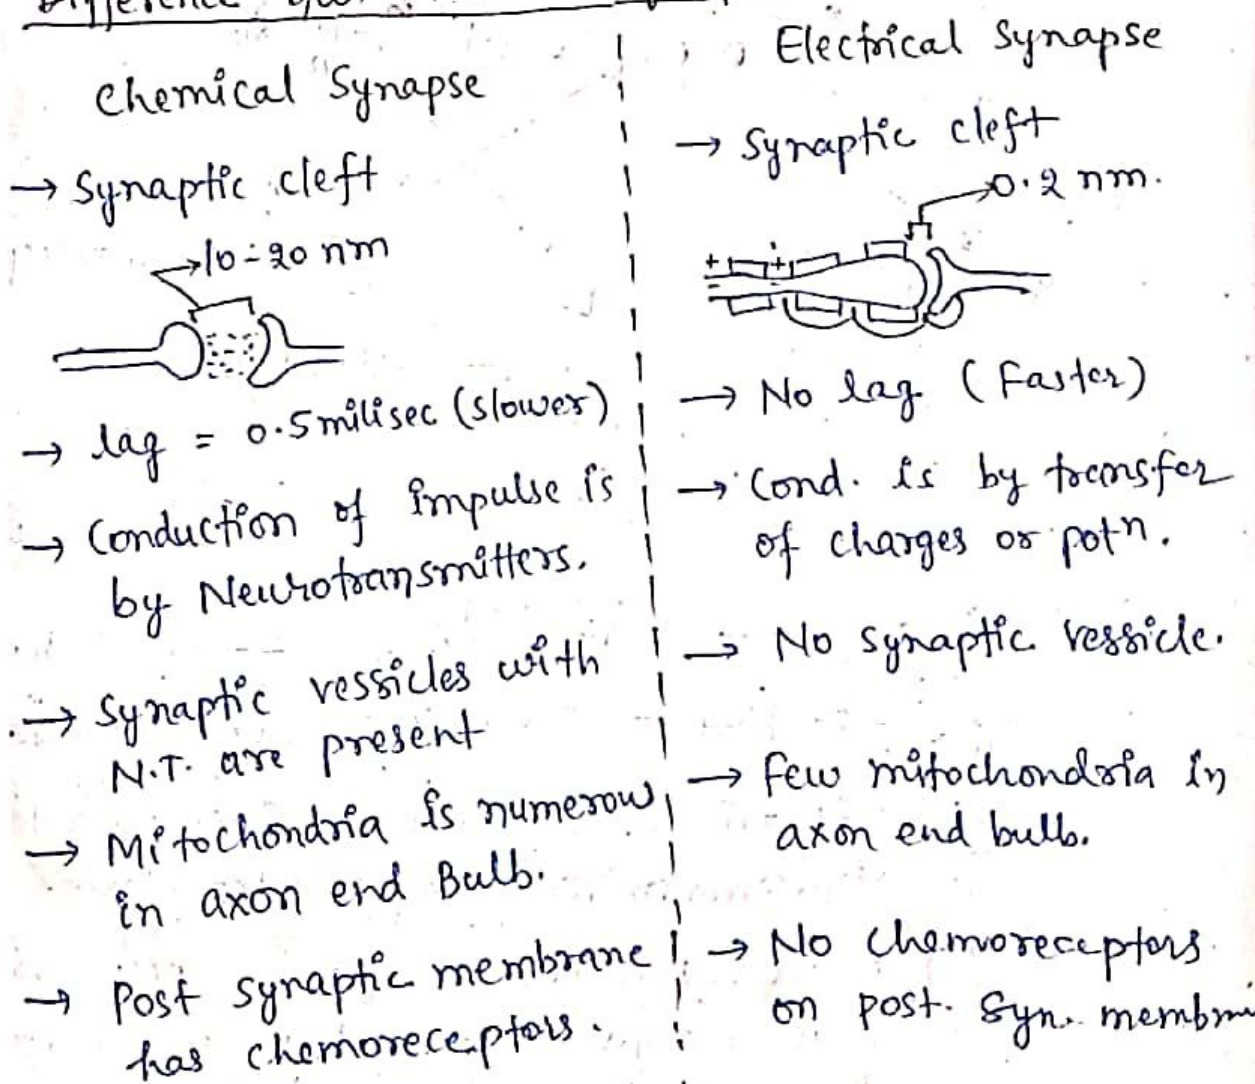 Difference
Chemical Synapse
→ Synaptic cleft
→10-20 nm
→ lag = 0.5 milisec (slower)
→ Conduction of impulse is
by Neurotransmitters.
→ Synaptic vessicles with
N.T. are present
→ Mitochondria is numerow
in axon end Bulb.
→ Post synaptic membrane
has chemoreceptors.
Electrical Synapse
→ Synaptic cleft
→0.2 nm.
+ +
→ No lag (Faster)
→ Cond. is by transfer
of charges or potn.
→ No synaptic vessicle.
→ few mitochondria in
axon end bulb.
→ No chemoreceptors
on post. Syn. membra